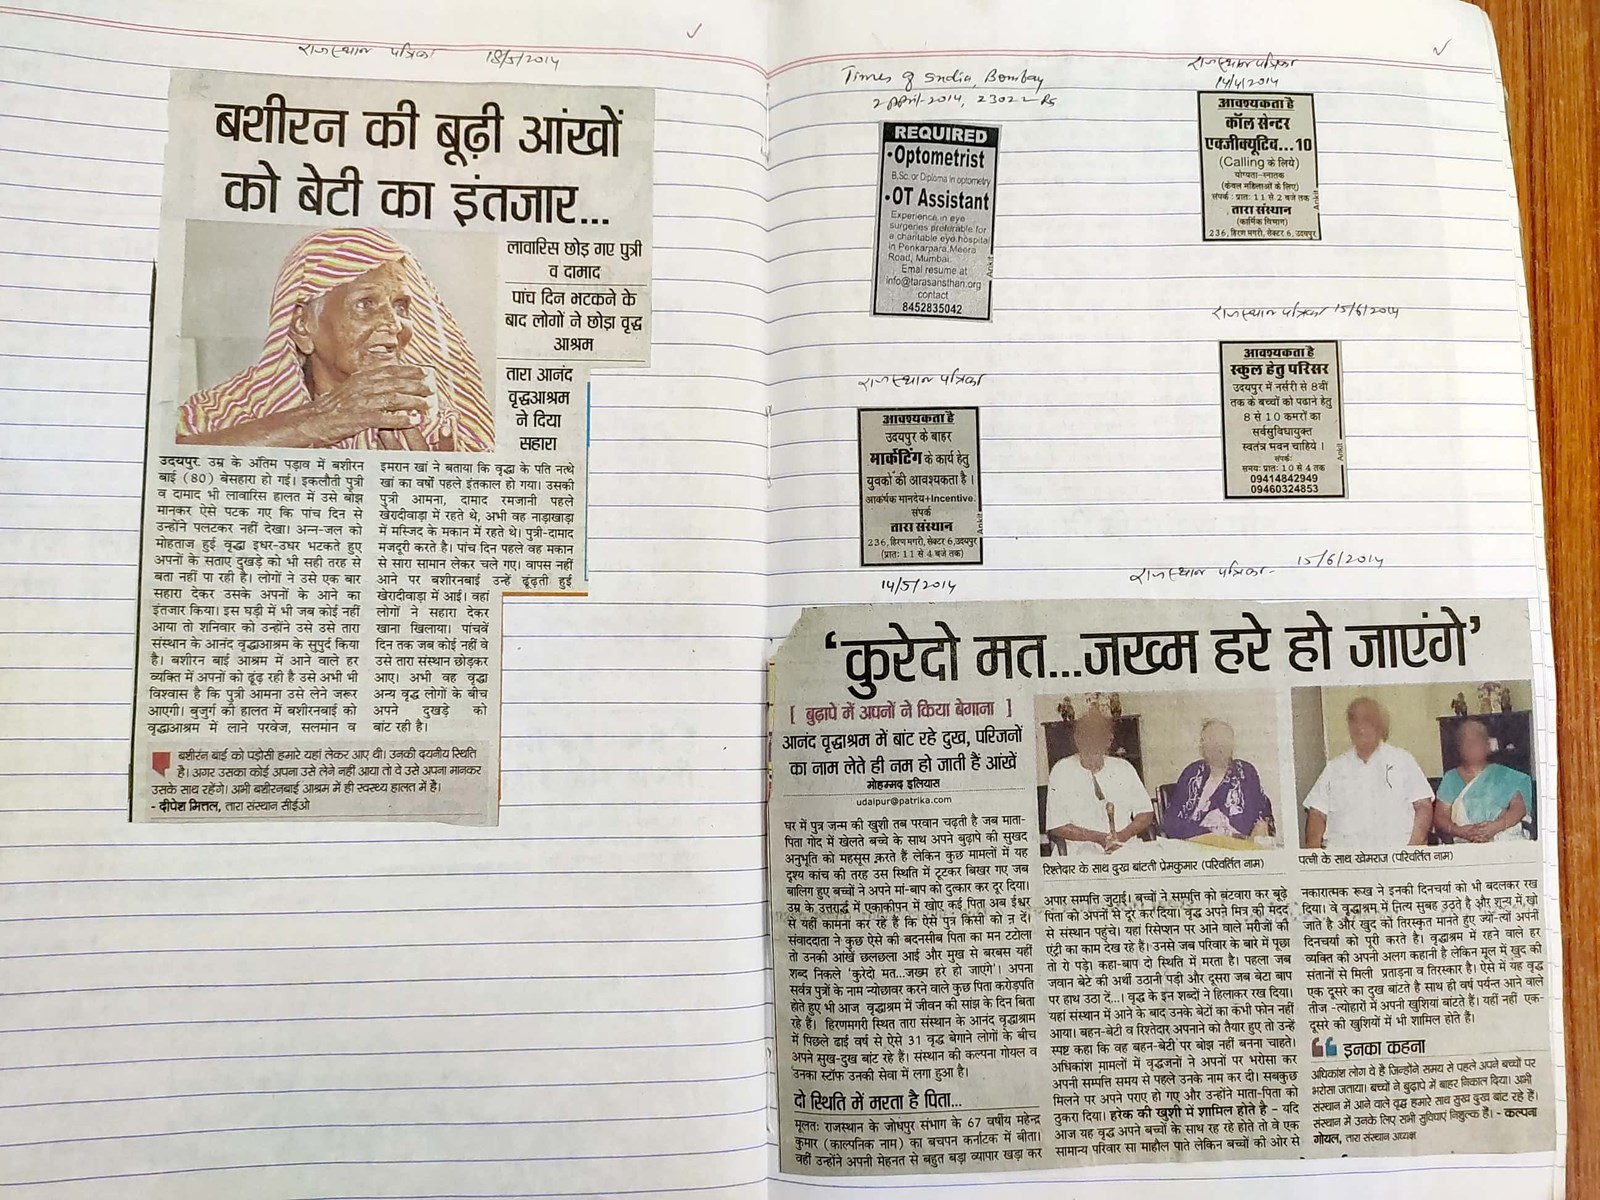 राजस्थान पत्रिका 18/5/2014
बशीरन की बूढ़ी आंखों
को बेटी का इंतजार...
लावारिस छोड़ गए पुत्री
व दामाद
पांच दिन भटकने के
बाद लोगों ने छोड़ा वृद्ध
आश्रम
तारा आनंद
वृद्धआश्रम
ने दिया
सहारा
उदयपुर. उम्र के अंतिम पड़ाव में बशीरन
बाई (80) बेसहारा हो गई। इकलौती पुत्री
व दामाद भी लावारिस हालत में उसे बोझ
मानकर ऐसे पटक गए कि पांच दिन से
उन्होंने पलटकर नहीं देखा। अन्न-जल को
मोहताज हुई वृद्धा इधर-उधर भटकते हुए
अपनों के सताए दुखड़े को भी सही तरह से
बता नहीं पा रही है। लोगों ने उसे एक बार
सहारा देकर उसके अपनों के आने का
इंतजार किया। इस घड़ी में भी जब कोई नहीं
आया तो शनिवार को उन्होंने उसे उसे तारा
संस्थान के आनंद वृद्धाआश्रम के सुपुर्द किया
है। बशीरन बाई आश्रम में आने वाले हर
व्यक्ति में अपनों को ढूंढ़ रही है उसे अभी भी
विश्वास है कि पुत्री आमना उसे लेने जरूर
आएगी। बुजुर्ग की हालत में बशीरनबाई को
वृद्धाआश्रम में लाने परवेज, सलमान व
इमरान खां ने बताया कि वृद्धा के पति नत्थे
खां का वर्षों पहले इंतकाल हो गया। उसकी
पुत्री आमना, दामाद रमजानी पहले
खेरादीवाड़ा में रहते थे, अभी वह नाड़ाखाड़ा
में मस्जिद के मकान में रहते थे। पुत्री-दामाद
मजदूरी करते है। पांच दिन पहले वह मकान
से सारा सामान लेकर चले गए। वापस नहीं
आने पर बशीरनबाई उन्हें ढूंढ़ती हुई
खेरादीवाड़ा में आई। वहां
लोगों ने सहारा देकर
खाना खिलाया। पांचवें
दिन तक जब कोई नहीं वे
उसे तारा संस्थान छोड़कर
आए। अभी वह वृद्धा
अन्य वृद्ध लोगों के बीच
अपने दुखड़े को
बांट रही है।
बशीरन बाई को पड़ोसी हमारे यहां लेकर आए थी। उनकी दयनीय स्थिति
है। अगर उसका कोई अपना उसे लेने नहीं आया तो वे उसे अपना मानकर
उसके साथ रहेंगे। अभी बशीरनबाई आश्रम में ही स्वस्थ्य हालत में है।
- दीपेश मित्तल, तारा संस्थान सीईओ
Times of India, Bombay
2 April-2014, 23022 Rs
REQUIRED
•Optometrist
B.Sc. or Diploma in optometry
•OT Assistant
Experience in eye
surgeries preferable for
a charitable eye hospital
in Penkarpara, Meera
Road, Mumbai.
Email resume at
info@tarasansthan.org
contact
8452835042
Ankit
राजस्थान पत्रिका
14/4/2014
आवश्यकता है
कॉल सेन्टर
एक्जीक्यूटिव...10
(Calling के लिये)
योग्यता-स्नातक
(केवल महिलाओं के लिए)
संपर्क : प्रातः 11 से 2 बजे तक
तारा संस्थान
(कार्मिक विभाग)
236, हिरण मगरी, सेक्टर 6, उदयपुर
Ankit
राजस्थान पत्रिका
आवश्यकता है
उदयपुर के बाहर
मार्केटिंग के कार्य हेतु
युवकों की आवश्यकता है।
आकर्षक मानदेय+Incentive.
संपर्क
तारा संस्थान
236, हिरण मगरी, सेक्टर 6, उदयपुर
(प्रातः 11 से 4 बजे तक)
Ankit
14/5/2014
राजस्थान पत्रिका 15/6/2014
आवश्यकता है
स्कुल हेतु परिसर
उदयपुर में नर्सरी से 8वीं
तक के बच्चों को पढाने हेतु
8 से 10 कमरों का
सर्वसुविधायुक्त
स्वतंत्र भवन चाहिये।
संपर्कः
समयः प्रातः 10 से 4 तक
09414842949
09460324853
Ankit
राजस्थान पत्रिका- 15/6/2014
'कुरेदो मत...जख्म हरे हो जाएंगे'
[ बुढ़ापे में अपनों ने किया बेगाना ]
आनंद वृद्धाश्रम में बांट रहे दुख, परिजनों
का नाम लेते ही नम हो जाती हैं आंखें
मोहम्मद इलियास
udaipur@patrika.com
घर में पुत्र जन्म की खुशी तब परवान चढ़ती है जब माता-
पिता गोद में खेलते बच्चे के साथ अपने बुढ़ापे की सुखद
अनुभूति को महसूस करते हैं लेकिन कुछ मामलों में यह
दृश्य कांच की तरह उस स्थिति में टूटकर बिखर गए जब
बालिग हुए बच्चों ने अपने मां-बाप को दुत्कार कर दूर दिया।
उम्र के उत्तरार्द्ध में एकाकीपन में खोए कई पिता अब ईश्वर
से यहीं कामना कर रहे हैं कि ऐसे पुत्र किसी को न दें।
संवाददाता ने कुछ ऐसे की बदनसीब पिता का मन टटोला
तो उनकी आंखें छलछला आई और मुख से बरबस यहीं
शब्द निकले 'कुरेदो मत...जख्म हरे हो जाएंगे'। अपना
सर्वत्र पुत्रों के नाम न्योछावर करने वाले कुछ पिता करोड़पति
होते हुए भी आज वृद्धाश्रम में जीवन की सांझ के दिन बिता
रहे हैं। हिरणमगरी स्थित तारा संस्थान के आनंद वृद्धाश्राम
में पिछले ढाई वर्ष से ऐसे 31 वृद्ध बेगाने लोगों के बीच
अपने सुख-दुख बांट रहे हैं। संस्थान की कल्पना गोयल व
उनका स्टॉफ उनकी सेवा में लगा हुआ है।
दो स्थिति में मरता है पिता...
मूलतः राजस्थान के जोधपुर संभाग के 67 वर्षीय महेन्द्र
कुमार (काल्पनिक नाम) का बचपन कर्नाटक में बीता।
वहीं उन्होंने अपनी मेहनत से बहुत बड़ा व्यापार खड़ा कर
रिश्तेदार के साथ दुख बांटती प्रेमकुमार (परिवर्तित नाम)
अपार सम्पत्ति जुटाई। बच्चों ने सम्पत्ति को बंटवारा कर बूढ़े
पिता को अपनों से दूर कर दिया। वृद्ध अपने मित्र की मदद
से संस्थान पहुंचे। यहां रिसेप्शन पर आने वाले मरीजों की
एंट्री का काम देख रहे हैं। उनसे जब परिवार के बारे में पूछा
तो रो पड़े। कहा-बाप दो स्थिति में मरता है। पहला जब
जवान बेटे की अर्थी उठानी पड़ी और दूसरा जब बेटा बाप
पर हाथ उठा दें...। वृद्ध के इन शब्दों ने हिलाकर रख दिया।
यहां संस्थान में आने के बाद उनके बेटों का कभी फोन नहीं
आया। बहन-बेटी व रिश्तेदार अपनाने को तैयार हुए तो उन्हें
स्पष्ट कहा कि वह बहन-बेटी पर बोझ नहीं बनना चाहते।
अधिकांश मामलों में वृद्धजनों ने अपनों पर भरोसा कर
अपनी सम्पत्ति समय से पहले उनके नाम कर दी। सबकुछ
मिलने पर अपने पराए हो गए और उन्होंने माता-पिता को
ठुकरा दिया। हरेक की खुशी में शामिल होते है - यदि
आज यह वृद्ध अपने बच्चों के साथ रह रहे होते तो वे एक
सामान्य परिवार सा माहौल पाते लेकिन बच्चों की ओर से
पत्नी के साथ खेमराज (परिवर्तित नाम)
नकारात्मक रूख ने इनकी दिनचर्या को भी बदलकर रख
दिया। वे वृद्धाश्रम में नित्य सुबह उठते है और शून्य में खो
जाते है और खुद को तिरस्कृत मानते हुए ज्यों-त्यों अपनी
दिनचर्या को पूरी करते है। वृद्धाश्रम में रहने वाले हर
व्यक्ति की अपनी अलग कहानी है लेकिन मूल में खुद की
संतानों से मिली प्रताड़ना व तिरस्कार है। ऐसे में यह वृद्ध
एक दूसरे का दुख बांटते है साथ ही वर्ष पर्यन्त आने वाले
तीज -त्योहारों में अपनी खुशियां बांटते हैं। यहीं नहीं एक-
दूसरे की खुशियों में भी शामिल होते है।
इनका कहना
अधिकांश लोग वे है जिन्होंने समय से पहले अपने बच्चों पर
भरोसा जताया। बच्चों ने बुढ़ापे में बाहर निकाल दिया। अभी
संस्थान में आने वाले वृद्ध हमारे साथ सुख दुख बांट रहे हैं।
संस्थान में उनके लिए सभी सुविधाएं निशुल्क हैं। - कल्पना
गोयल, तारा संस्थान अध्यक्ष